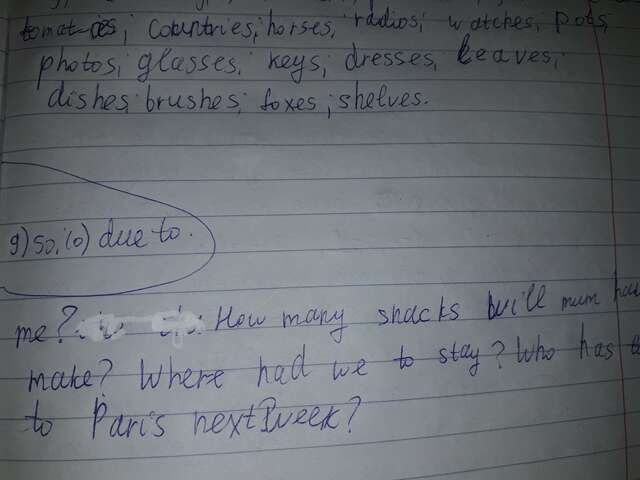 tomatoes; countries; horses; radios; watches, pots,
photos; glasses, keys, dresses, leaves,
dishes, brushes, foxes, shelves.
9) so, 10) due to.
me? How many snacks will mum have
make? Where had we to stay? Who has
to Paris next week?